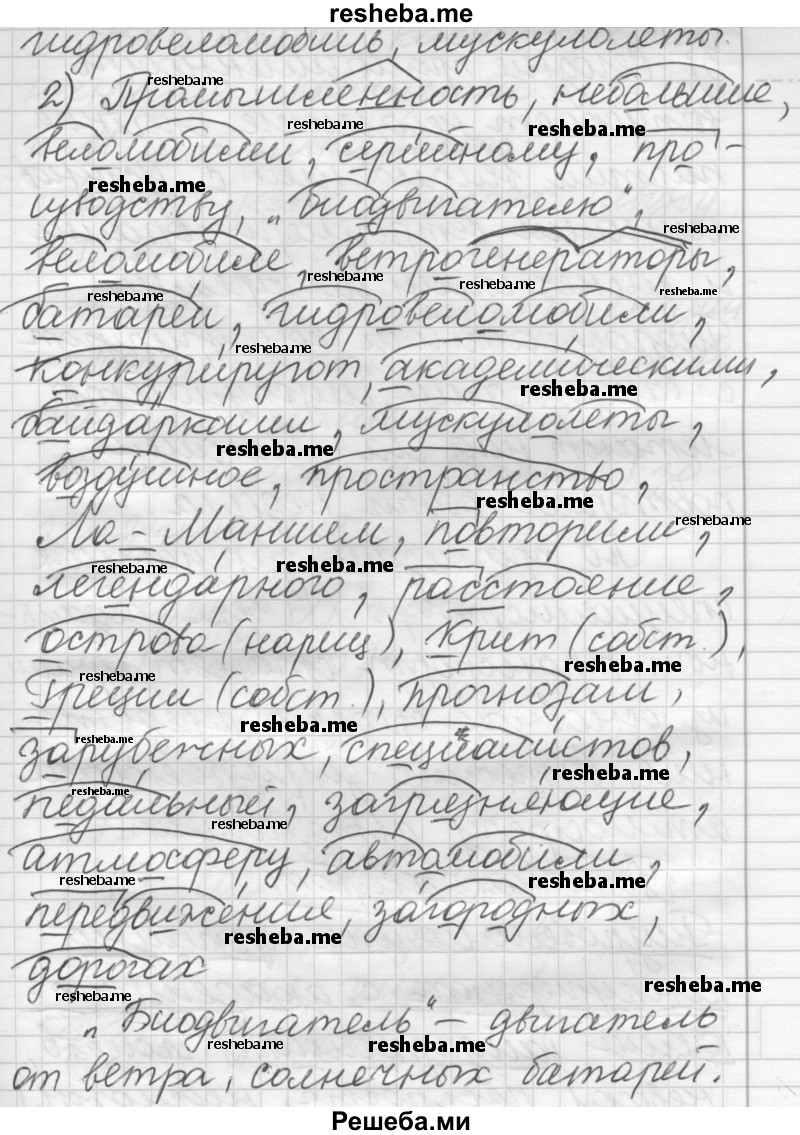 resheba.me
гидровеломобиль, мускулолеты.
resheba.me
2) Промышленность, небольшие,
resheba.me
resheba.me
веломобилей, серийному, про-
resheba.me
изводству, „биодвигателю“,
resheba.me
веломобиле, ветрогенераторы,
resheba.me resheba.me resheba.me resheba.me
батареи, гидровеломобили,
resheba.me
конкурируют, академическими,
resheba.me
байдарками, мускулолеты,
resheba.me
воздушное, пространство,
resheba.me
Ла-Маншем, повторили,
resheba.me
resheba.me resheba.me
легендарного, расстояние,
острова (нариц), Крит (собст.),
resheba.me
resheba.me
Греции (собст.), прогнозам,
resheba.me
resheba.me
зарубежных, специалистов,
resheba.me
resheba.me
педальный, загрязняющие,
resheba.me
атмосферу, автомобили,
resheba.me resheba.me
передвижения, загородных,
resheba.me
дорогах
resheba.me
resheba.me
„Биодвигатель“ – двигатель
resheba.me resheba.me
от ветра, солнечных батарей.
Решеба.ми